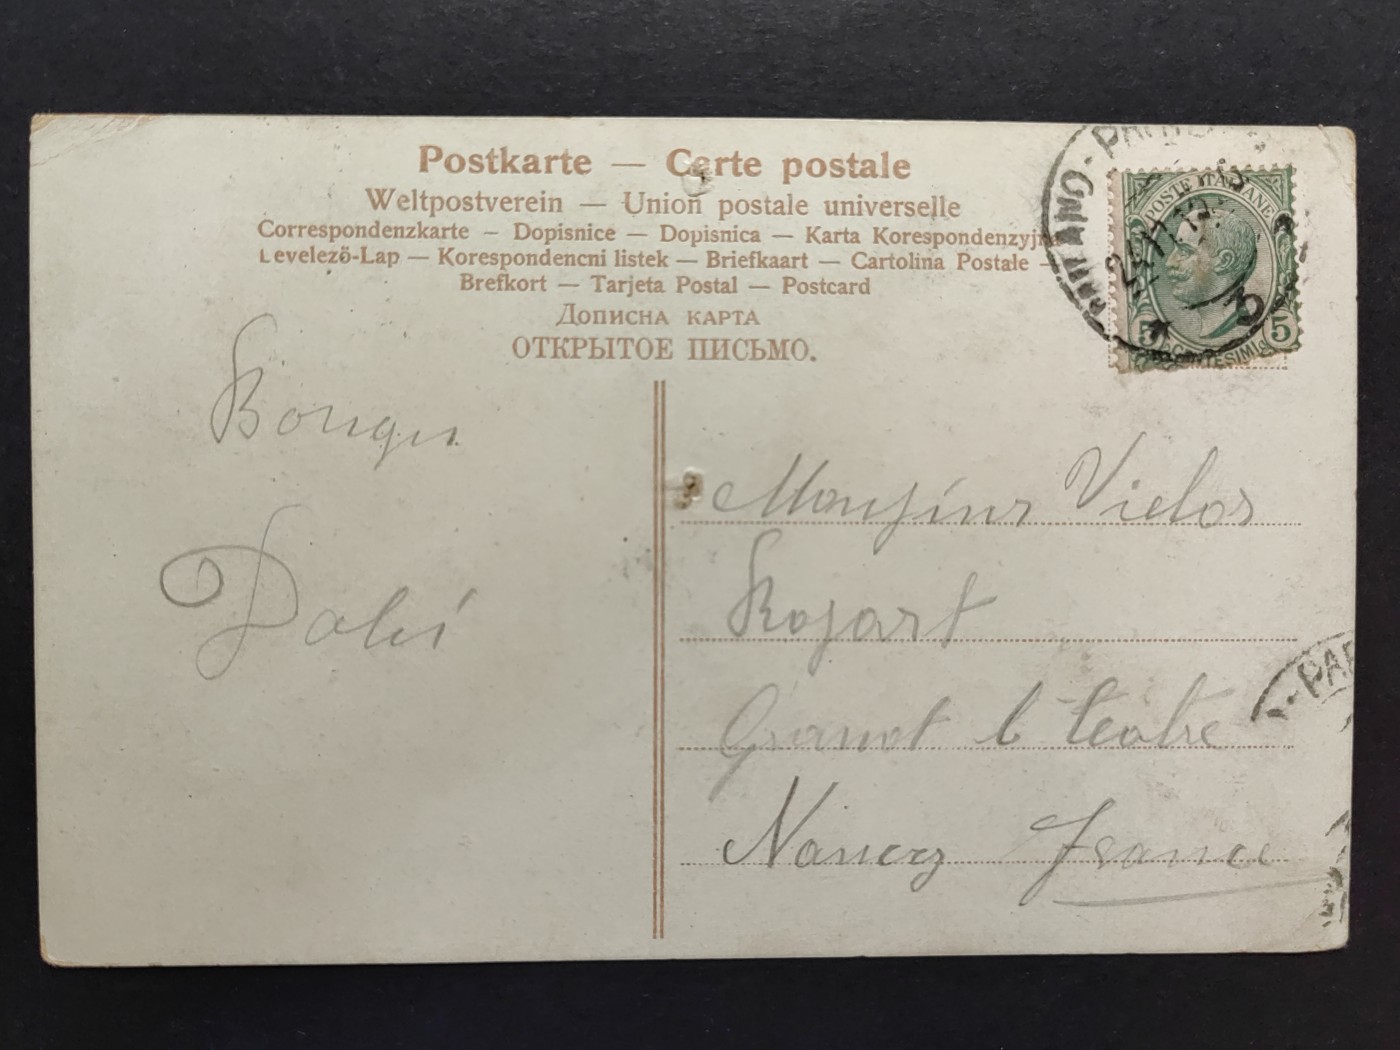 Postkarte — Carte postale
Weltpostverein — Union postale universelle
Correspondenzkarte – Dopisnice — Dopisnica — Karta Korespondenzyjn
Levelező-Lap — Korespondencni listek — Briefkaart — Cartolina Postale —
Brefkort — Tarjeta Postal — Postcard
Дописна карта
ОТКРЫТОЕ ПИСЬМО.
MILANO-PARTENZA
POSTE ITALIANE
5 CENTESIMI 5
Monsieur Victor
Grand teatre
Nancy France
- PAR